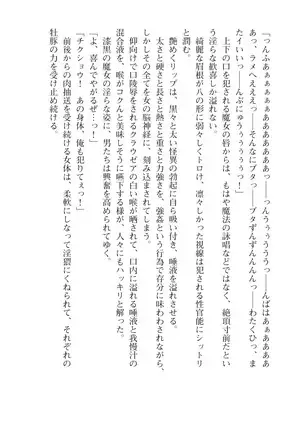 「つんふぁぁぁああああああ、つぅぅぅぅううっ――んぱはぁぁぁああ
あっ、ラメへええええっ、そんなにブタっ――ブタずんずんんんっ――わたくひっ、ま
たイィいいっ――んぶにゅうぅぅぅぅうううっ！」
上下の口を犯される魔女の唇からは、もはや魔法の詠唱などではなく、絶頂寸前だとい
う淫らな歓喜しか溢れない。
綺麗な眉根が八の形に弱々しくトロけ、凛々しかった視線は犯される性官能にシットリ
と潤む。
艶めくリップは、黒々と太い怪異の勃起に自ら吸い付き、唾液を溢れさせる。
太さと硬さと重さと力強さを、強姦という行為で存分に味わわされながら、
しかしその全てを女の脳神経に、刻み込まされてしまうのだ。
仰向けで口陵辱をされるクラウゼアの白い喉が晒されて、口内に溢れる唾液と我慢汁の
混合液を、喉がコクんと美味しそうに嚥下する様が、人々にもハッキリと解った。
漆黒の魔女の淫らな姿に、男たちは興奮を高められてゆく。
「よ、喜んでやがるぜ…っ！」
「チクショウ！　あの身体、俺も犯りてぇ…っ！」
前後からの肉抽送を受け止める女体は、柔軟にしなって淫猥にくねられて、それぞれの
牡豚の力を受け止め続ける。